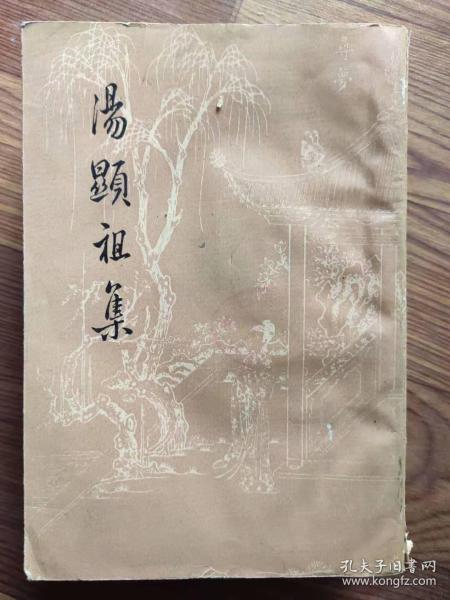 湯顯祖集
尋夢
孔夫子旧书网
www.kongfz.com